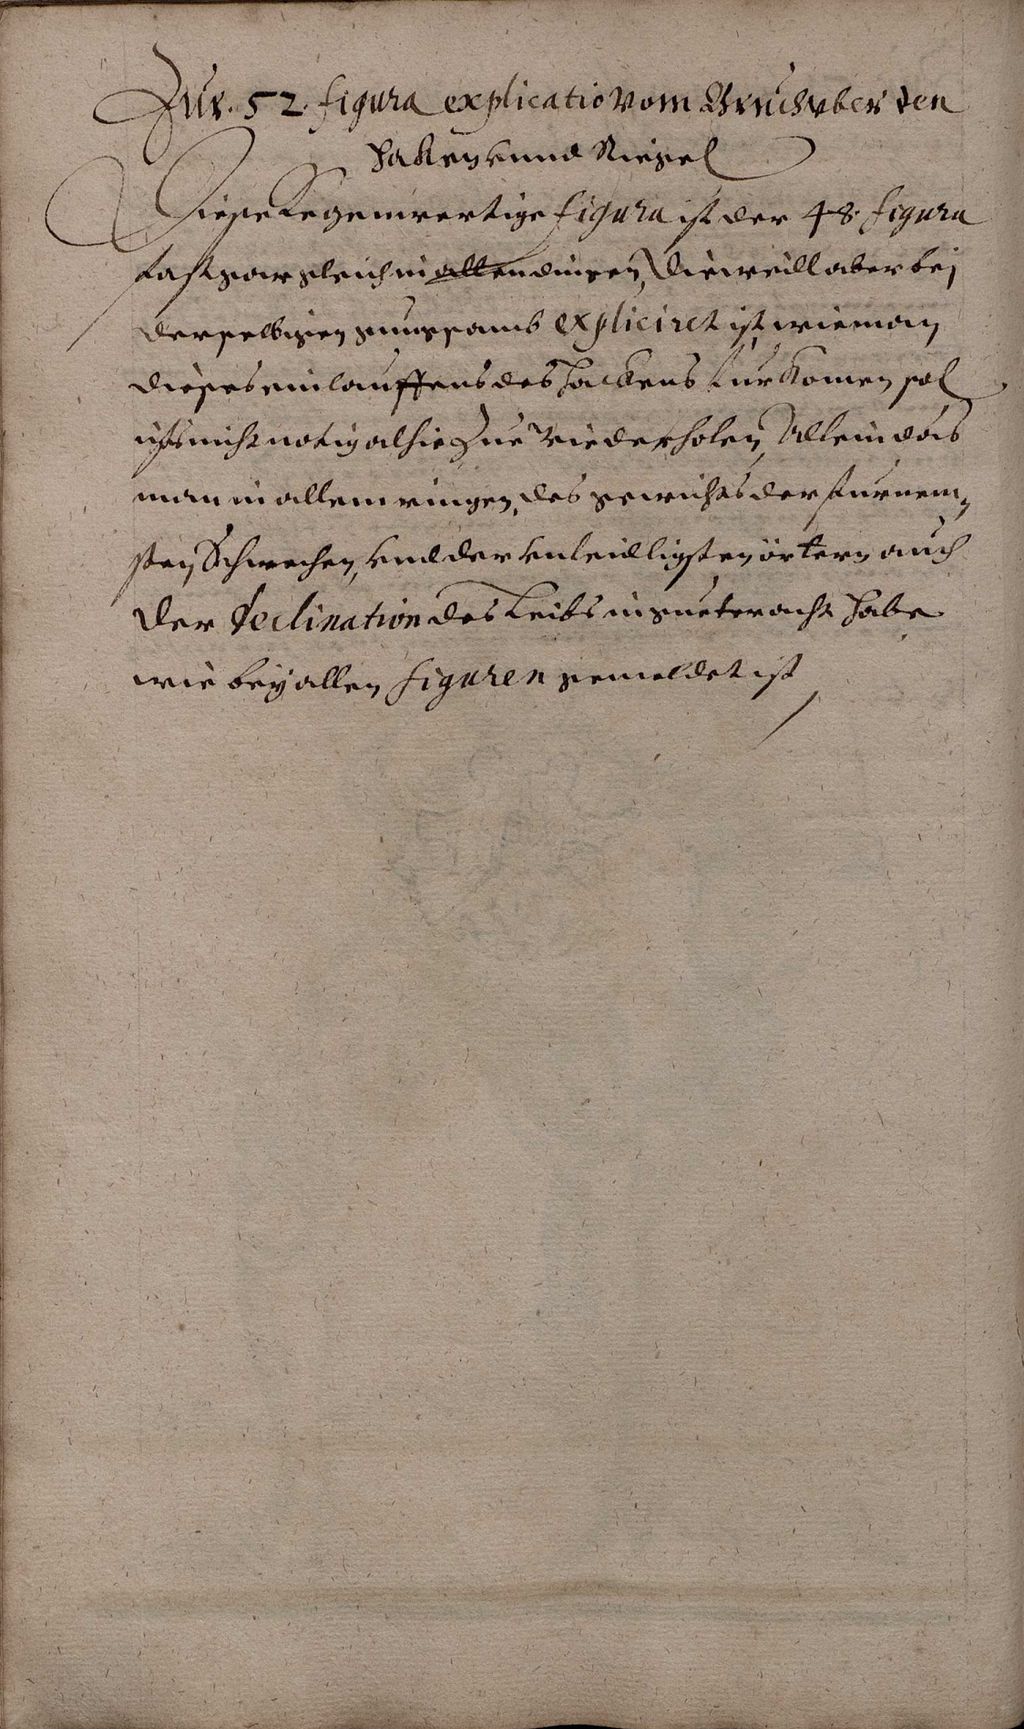 Zur. 52. figura explicatio vom Bruch vber den
Haken vnnd Riegel
Diese kegenwertige figura ist der 48. figura
fast gar gleich in allen dingen, Dieweill aber bei
derselbigen gnugsamb expliciret ist, wie man
dieses einlauffens des Hackens fur komen sol
ists nicht notig alhie Zue wiederholen, Allein das
man in allem ringen, des gewichts der furnem„
sten Schwechen, vnd der vnleidligsten örtern auch
der Declination des Leibs in gueter acht habe
wie bey allen figuren gemeldet ist